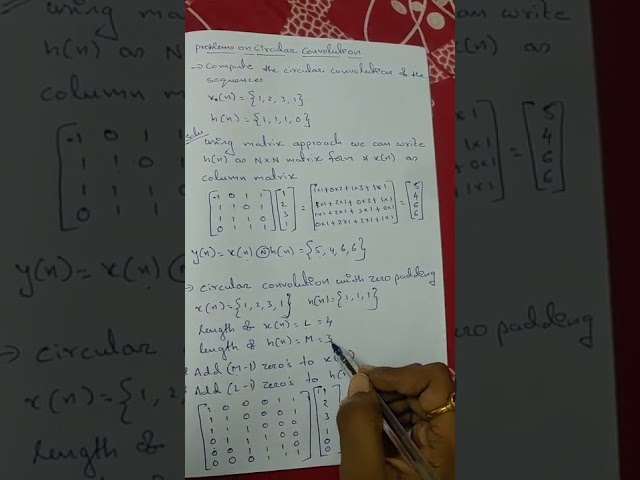 problems on Circular Convolution
→ Compute the circular convolution of the
sequences
x(n) = {1, 2, 3, 1}
h(n) = {1, 1, 1, 0}
Using matrix approach we can write
h(n) as N×N matrix form & x(n) as
column matrix
[1 0 1 1] [1] = [1x1+0x2+1x3+1x1] = [5]
[1 1 0 1] [2] [1x1+2x1+0x3+1x1] [4]
[1 1 1 0] [3] [1x1+2x1+3x1+0x1] [6]
[0 1 1 1] [1] [0x1+2x1+3x1+1x1] [6]
y(n) = x(n) Ⓝ h(n) = {5, 4, 6, 6}
→ circular convolution with zero padding
x(n) = {1, 2, 3, 1} h(n) = {1, 1, 1}
length of x(n) = L = 4
length of h(n) = M = 3
Add (M-1) zero's to x(
Add (L-1) zero's to h(
1 0 0 0 1 1 1
1 1 0 0 0 1 2
1 1 1 0 0 0 3
0 1 1 1 0 0 1
0 0 1 1 1 0 0
0 0 0 1 1 1 0